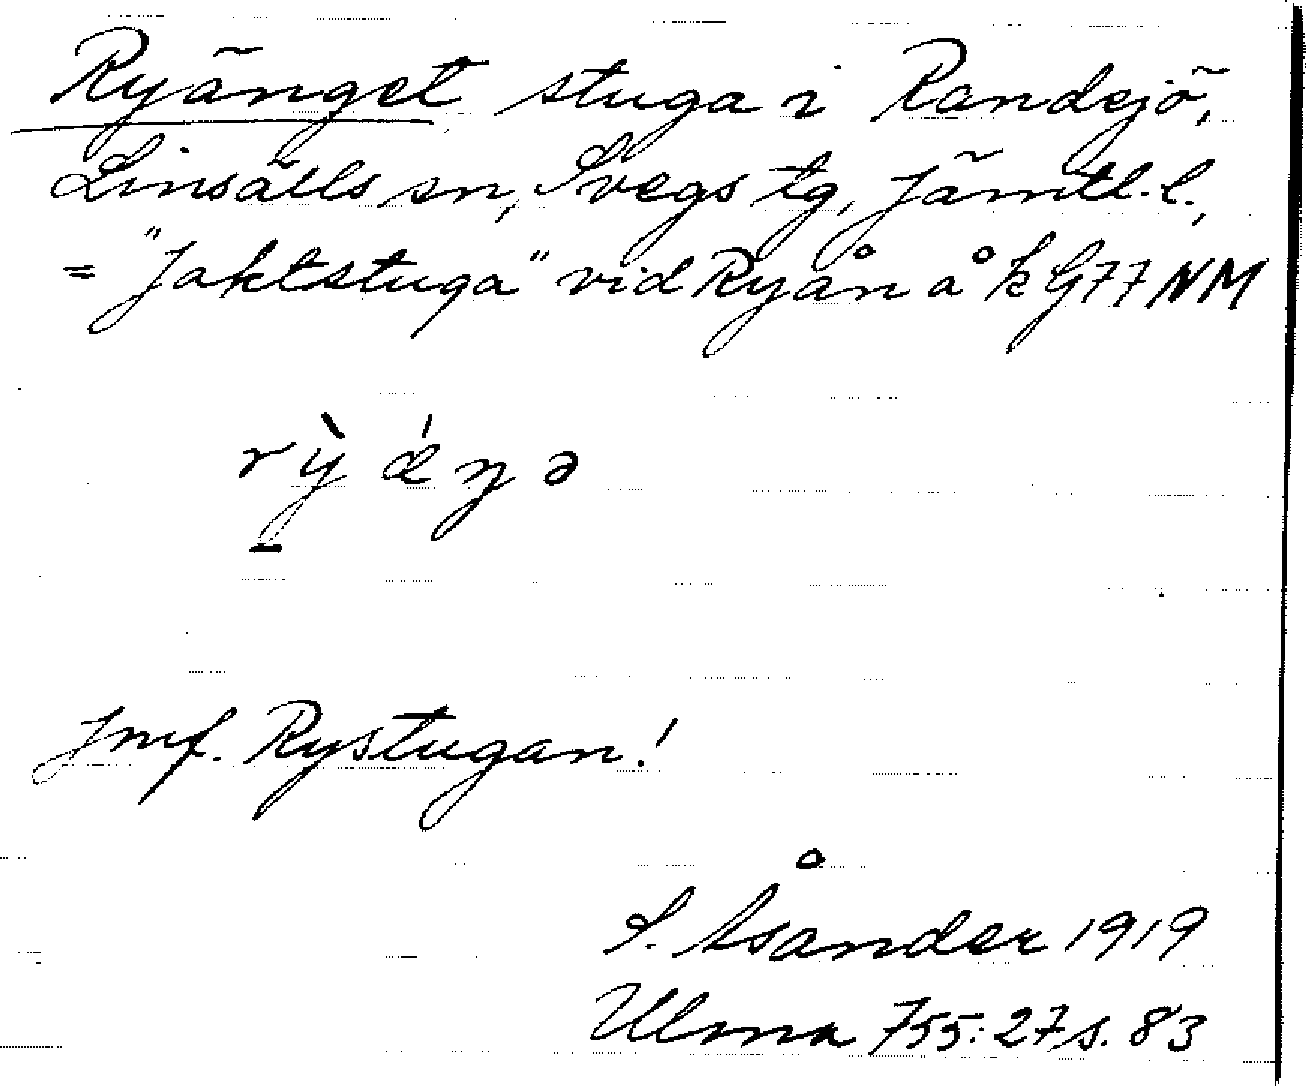 Ryänget stuga i Randsjö,
Linsälls sn, Svegs tg, Jämtl. l.,
= "Jaktstuga" vid Ryån å k G 77 NM
rỳǽŋə
Jmf. Rystugan!
S. Åsander 1919
Ulma 755:27 s. 83